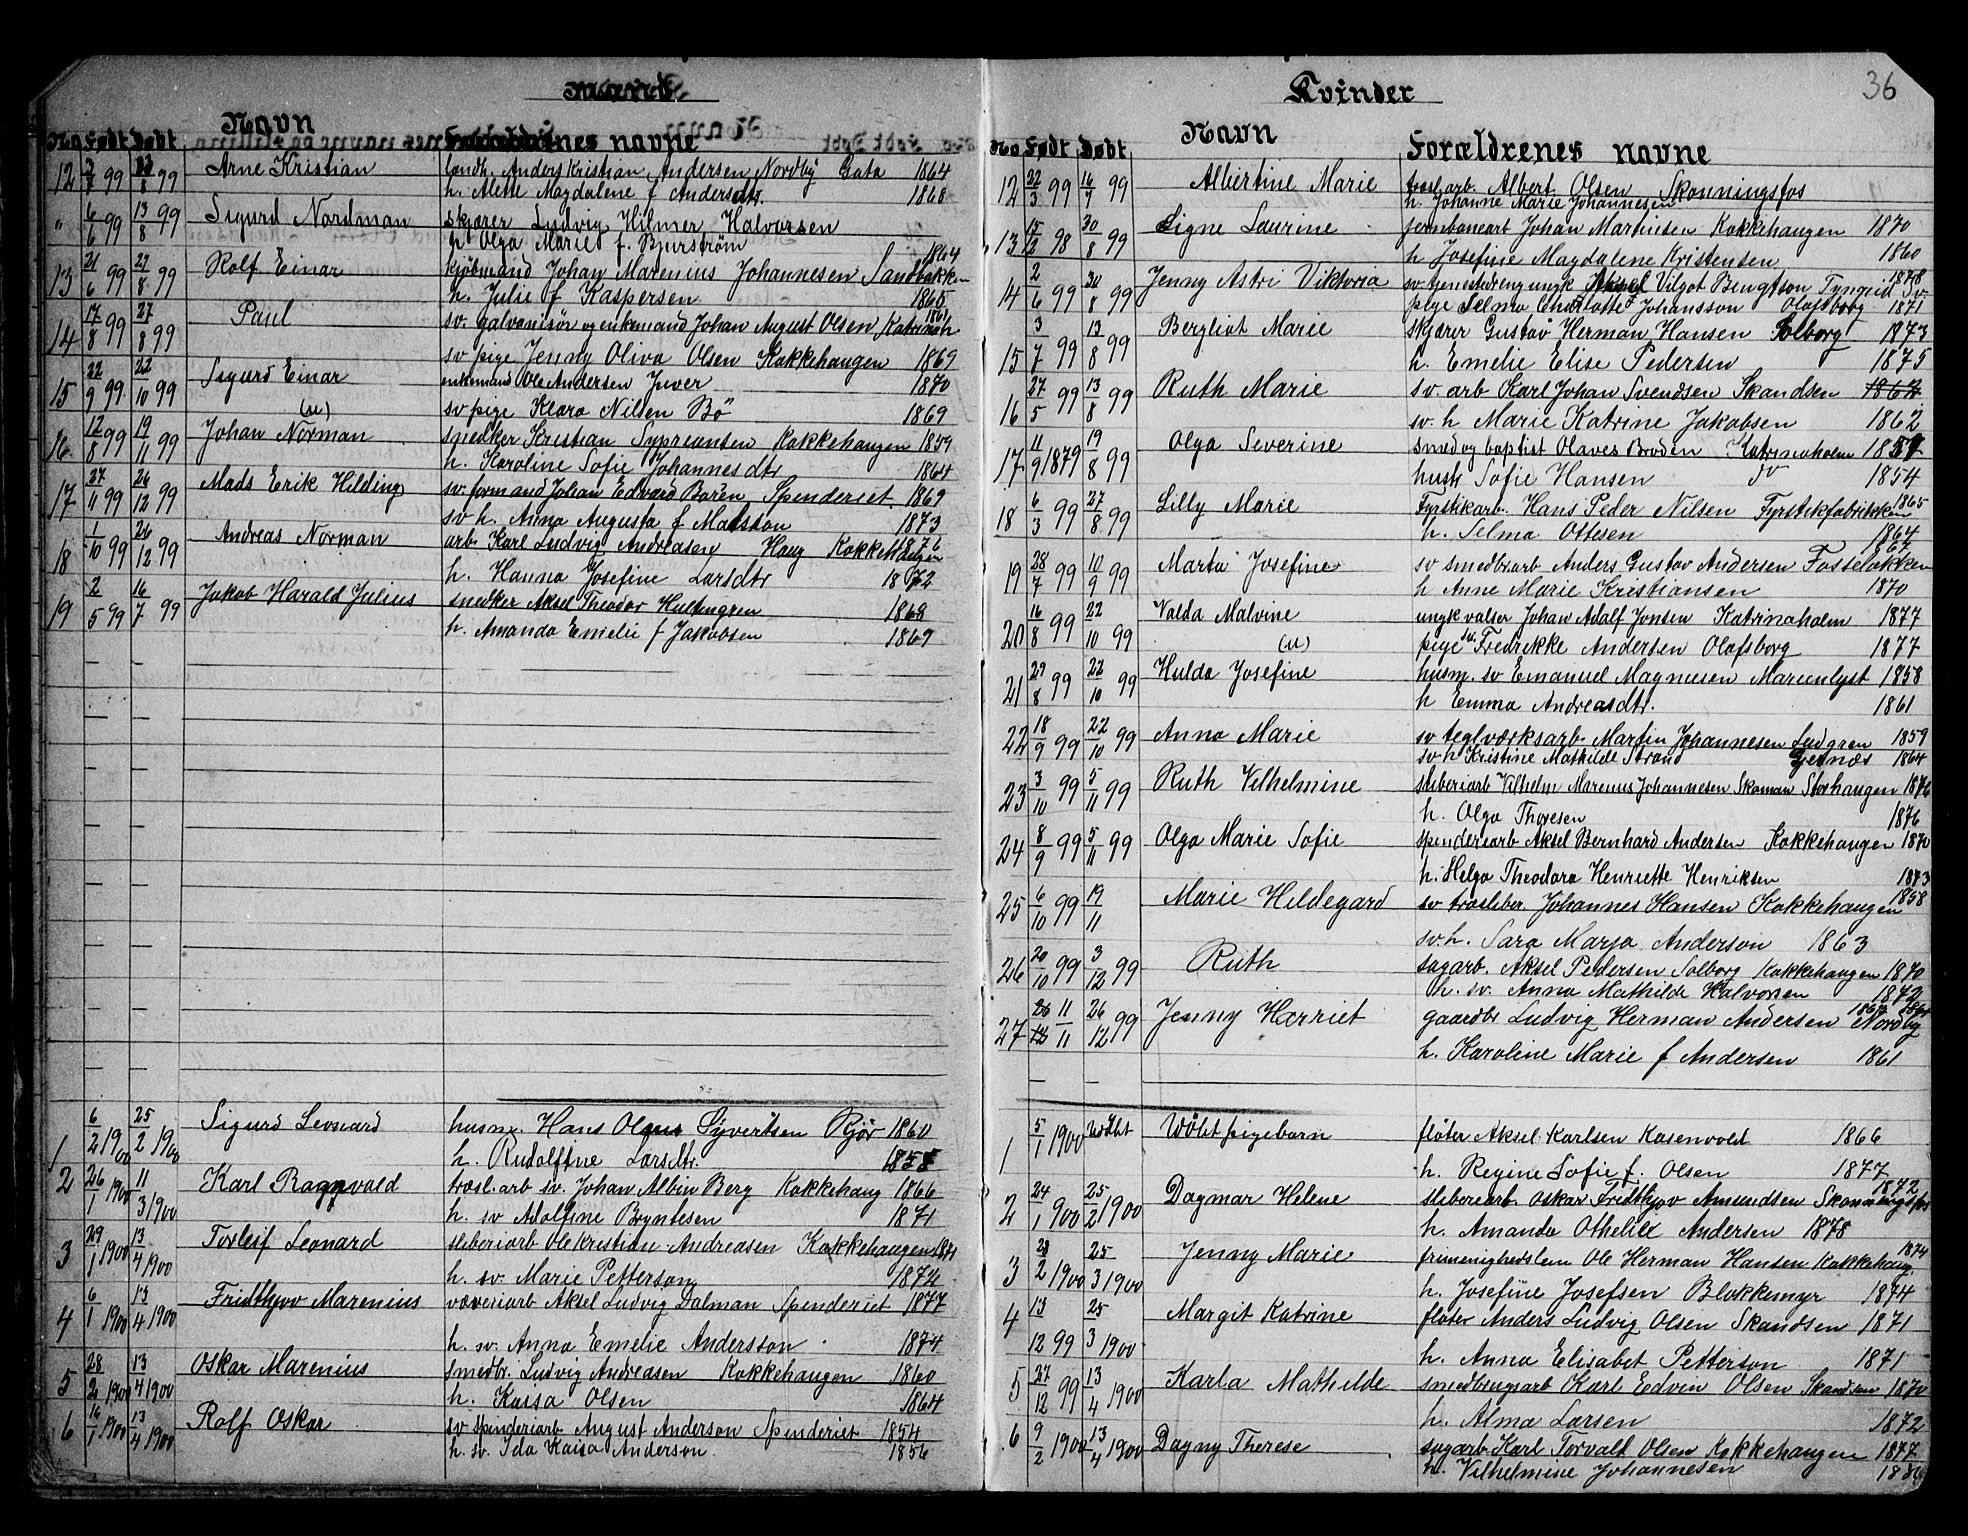 36
Mænd
No Født Døbt Navn Forældrenes navne
12 3/7 99 13/8 99 Arne Kristian landh. Anders Kristian Andersen Nordby Gata 1864
h. Alette Magdalene f Andersdtr. 1868
" 6/6 99 13/8 99 Sigurd Nordman skjærer Ludvig Hilmer Halvorsen
h. Olga Marie f. Bjurstrøm
13 21/6 99 27/8 99 Rolf Einar kjøbmand Johan Marenius Johannesen Sandbakken 1864
h. Julie f Kaspersen 1865
14 17/8 99 27/8 99 Paul sv. galvanisør og enkemand Johan August Olsen Katrinah 1861
sv pige Jenny Oliva Olsen Kokkehaugen 1869
15 22/9 99 22/10 99 Sigurd Einar enkemand Ole Andersen Juver 1870
(u) sv pige Klara Nilsen Bö 1869
16 12/8 99 19/11 99 Johan Norman snedker Kristian Sypriansen Kokkehaugen 1859
h. Karoline Sofie Johannesdtr 1864
17 27/11 99 26/12 99 Mads Erik Hilding sv. formand Johan Edvard Borén Spenderiet 1869
sv h. Anna Augusta f Matsson 1873
18 1/10 99 26/12 99 Andreas Norman arb Karl Ludvig Andreasen Haug Kokkehaugen 1876
h. Hanna Josefine Larsdtr 1872
19 2/5 99 16/7 99 Jakob Harald Julius snedker Aksel Theodor Hultengren 1868
h. Amanda Emelie f Jakobsen 1869
1 6/2 1900 25/2 1900 Sigurd Leonard husm. Hans Olaus Syvertsen Rjör 1860
h. Rudolfine Larsdtr. 1858
2 26/1 1900 11/3 1900 Karl Ragnvald træsl.arb sv. Johan Albin Berg Kokkehaug 1866
h. sv Adolfine Bryntesen 1871
3 29/1 1900 13/4 1900 Torleif Leonard sliberiarb Ole Kristian Andreasen Kokkehaugen 1871
h. sv. Marie Petterson 1874
4 6/1 1900 13/4 1900 Fridthjov Marenius væveriarb Aksel Ludvig Dalman Spenderiet 1877
h. sv. Anna Emelie Andersson 1874
5 28/2 1900 13/4 1900 Oskar Marenius smedbr. Ludvig Andreasen Kokkehaugen 1860
h. Kaisa Olsen 1864
6 16/1 1900 13/4 1900 Rolf Oskar sv spinderiarb August Anderson Spenderiet 1854
h. sv. Ida Kaisa Anderson 1856
Kvinder
No Født Døbt Navn Forældrenes navne
12 22/3 99 16/7 99 Albertine Marie træsl.arb. Albert Olsen Skonningsfos
h. Johanne Marie Johannesen
13 15/12 98 30/8 99 Signe Laurine jernbanearb Johan Martinsen Kokkehaugen 1870
h Josefine Magdalene Kristensen 1860
14 2/6 99 30/8 99 Jenny Astri Viktoria sv tjenestedreng ungk Aksel Vilgot Bengtson Tyngrid sv 1878
pige Selma Charlotte Johansson Olafsborg 1871
15 3/7 99 13/8 99 Bergliot Marie skjærer Gustav Herman Hansen Solborg 1873
h. Emelie Elise Pedersen 1875
16 27/5 99 13/8 99 Ruth Marie sv. arb Karl Johan Svendsen Skandsen 1864
sv. h Marie Katrine Jakobsen 1862
17 11/9 1879 19/8 99 Olga Severine smed og baptist Olaves Broden Katrineholm 1851
hustr Sofie Hansen do 1854
18 6/3 99 27/8 99 Lilly Marie Fyrstikarb. Hans Peder Nilsen Fyrstikfabrikken 1865
h. Selma Ottesen 1864
19 28/7 99 10/9 99 Marta Josefine sv smedbrarb Anders Gustav Andersen Fosseløkken 1867
h Anne Marie Kristiansen 1870
20 16/8 99 22/10 99 Valda Malvine ungk valser Johan Adolf Jonsen Katrinaholm 1877
(u) pige sv. Fredrikke Andersen Olafsborg 1877
21 29/8 99 22/10 99 Hulda Josefine husm. sv Emanuel Magnusen Marienlyst 1858
h Emma Andreasdtr. 1861
22 18/9 99 22/10 99 Anna Marie sv teglværksarb Martin Johannesen Ludgren 1859
sv h Kristine Mathilde Strand Gjesnæs 1864
23 3/10 99 5/11 99 Ruth Vilhelmine sliberiarb Vilhelm Marenus Johannesen Skaman Storhaugen 1876
h. Olga Thoresen 1876
24 8/9 99 5/11 99 Olga Marie Sofie spinderiarb Aksel Bernhard Andersen Kokkehaugen 1870
h. Helga Theodora Henriette Henriksen 1873
25 6/10 99 19/11 Marie Hildegard sv træsliber. Johannes Hansen Kokkehaugen 1858
sv. h. Sara Marja Anderson 1863
26 20/10 99 3/12 99 Ruth sagarb. Aksel Pedersen Solborg Kokkehaugen 1870
h. sv. Anna Mathilde Halvorsen 1872
27 11/11 26/12 99 Jenny Harriet gaardbr Ludvig Herman Andersen Nordby 1867
h. Karoline Marie f Andersen 1861
1 5/1 1900 Udöbt Udöbt pigebarn flöter Aksel Karlsen Kasenvold 1866
h. Regine Sofie f. Olsen 1877
2 24/1 1900 25/2 1900 Dagmar Helene sliberiarb. Oskar Fridthjov Amundsen Skonningsfos 1872
h. Amanda Othelie Andersen 1878
3 28/2 1900 25/3 1900 Jenny Marie frimenighedslem Ole Herman Hansen Kokkehaug 1874
h. Josefine Josefsen Blokkemyr 1874
4 13/12 99 25/3 1900 Margit Katrine fløter Anders Ludvig Olsen Skandsen 1871
h. Anna Elisabet Petterson 1871
5 27/12 99 13/4 1900 Karla Mathilde smedbrugsarb Karl Edvin Olsen Skandsen 1870
h. Alma Larsen 1872
6 9/2 1900 13/4 1900 Dagny Therese sagarb. Karl Torvald Olsen Kokkehaugen 1877
h. Vilhelmine Johannesen